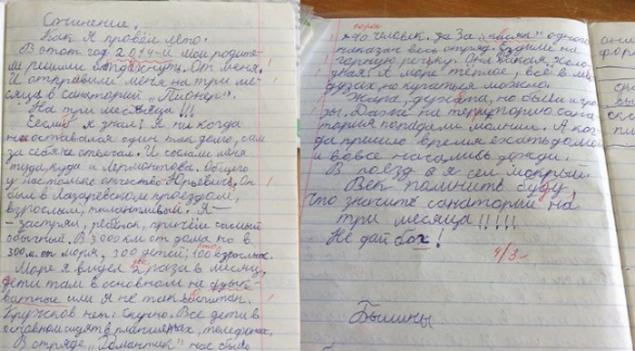 Сочинение.
Как я провёл лето.
В этот год 2014-й мои родите-
ли решили отдохнуть. От меня.
И отправили меня на три ме-
сяца в санаторий "Пионер".
На три месяца!!!
Если б я знал! Я никогда
не оставался один так долго, сам
за себя не отвечал. И сослали меня
туда, куда и Лермонтова. Общего
у настолько отчество Юрьевич. Он
был в Лазаревском проездом,
взрослый, талантливый. Я –
- застрял, ребёнок, причём самый
обычный. В 3000 км от дома но в
300 м. от моря, 300 детей, 100 взрослых.
Море я видел 2 раза в месяц,
дети там в основном не
или я не так воспитан.
Кружков нет. Скучно. Все дети в
основном сидят в планшетах, телефонах.
В отряде "Романтик" нас было
сорок
>40 человек. За одного
наказан весь отряд. Ездили на
горную речку. Она такая холо-
дная! А море тёплое, всё в ме-
дузах, но купаться можно.
Жара, духота, но были и гро-
зы. Даже на территорию сана-
тория попадали молнии. А ког-
да пришло время ехать домой
и вовсе начались дожди.
В поезд я сел мокрый.
Век помнить буду,
Что значит санаторий на
три месяца!!!!!
Не дай бох!
4/3
Былины